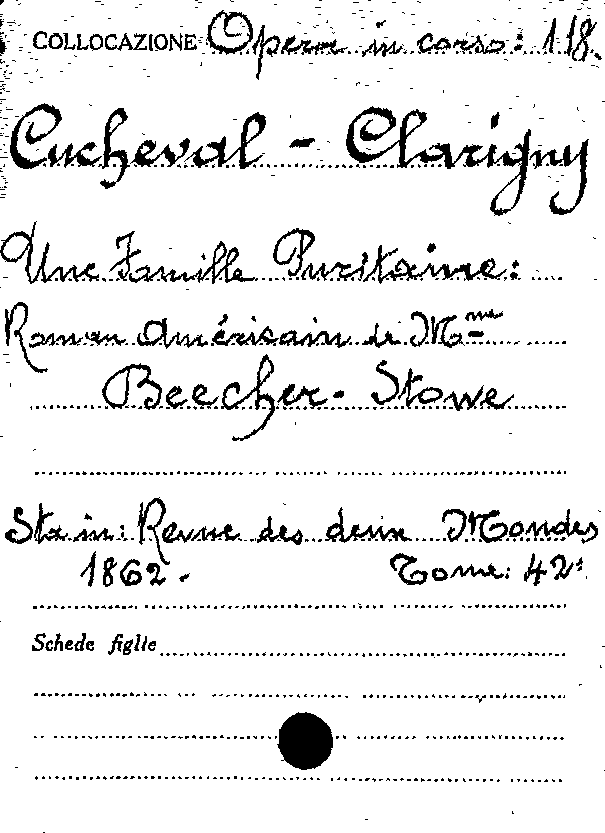 COLLOCAZIONE Opera in corso: 118.
Cucheval - Clarigny
Une Famille Puritaine:
Roman Américain de Mme
Beecher-Stowe
Sta in: Revue des deux Mondes
1862. Tome: 42:
Schede figlie